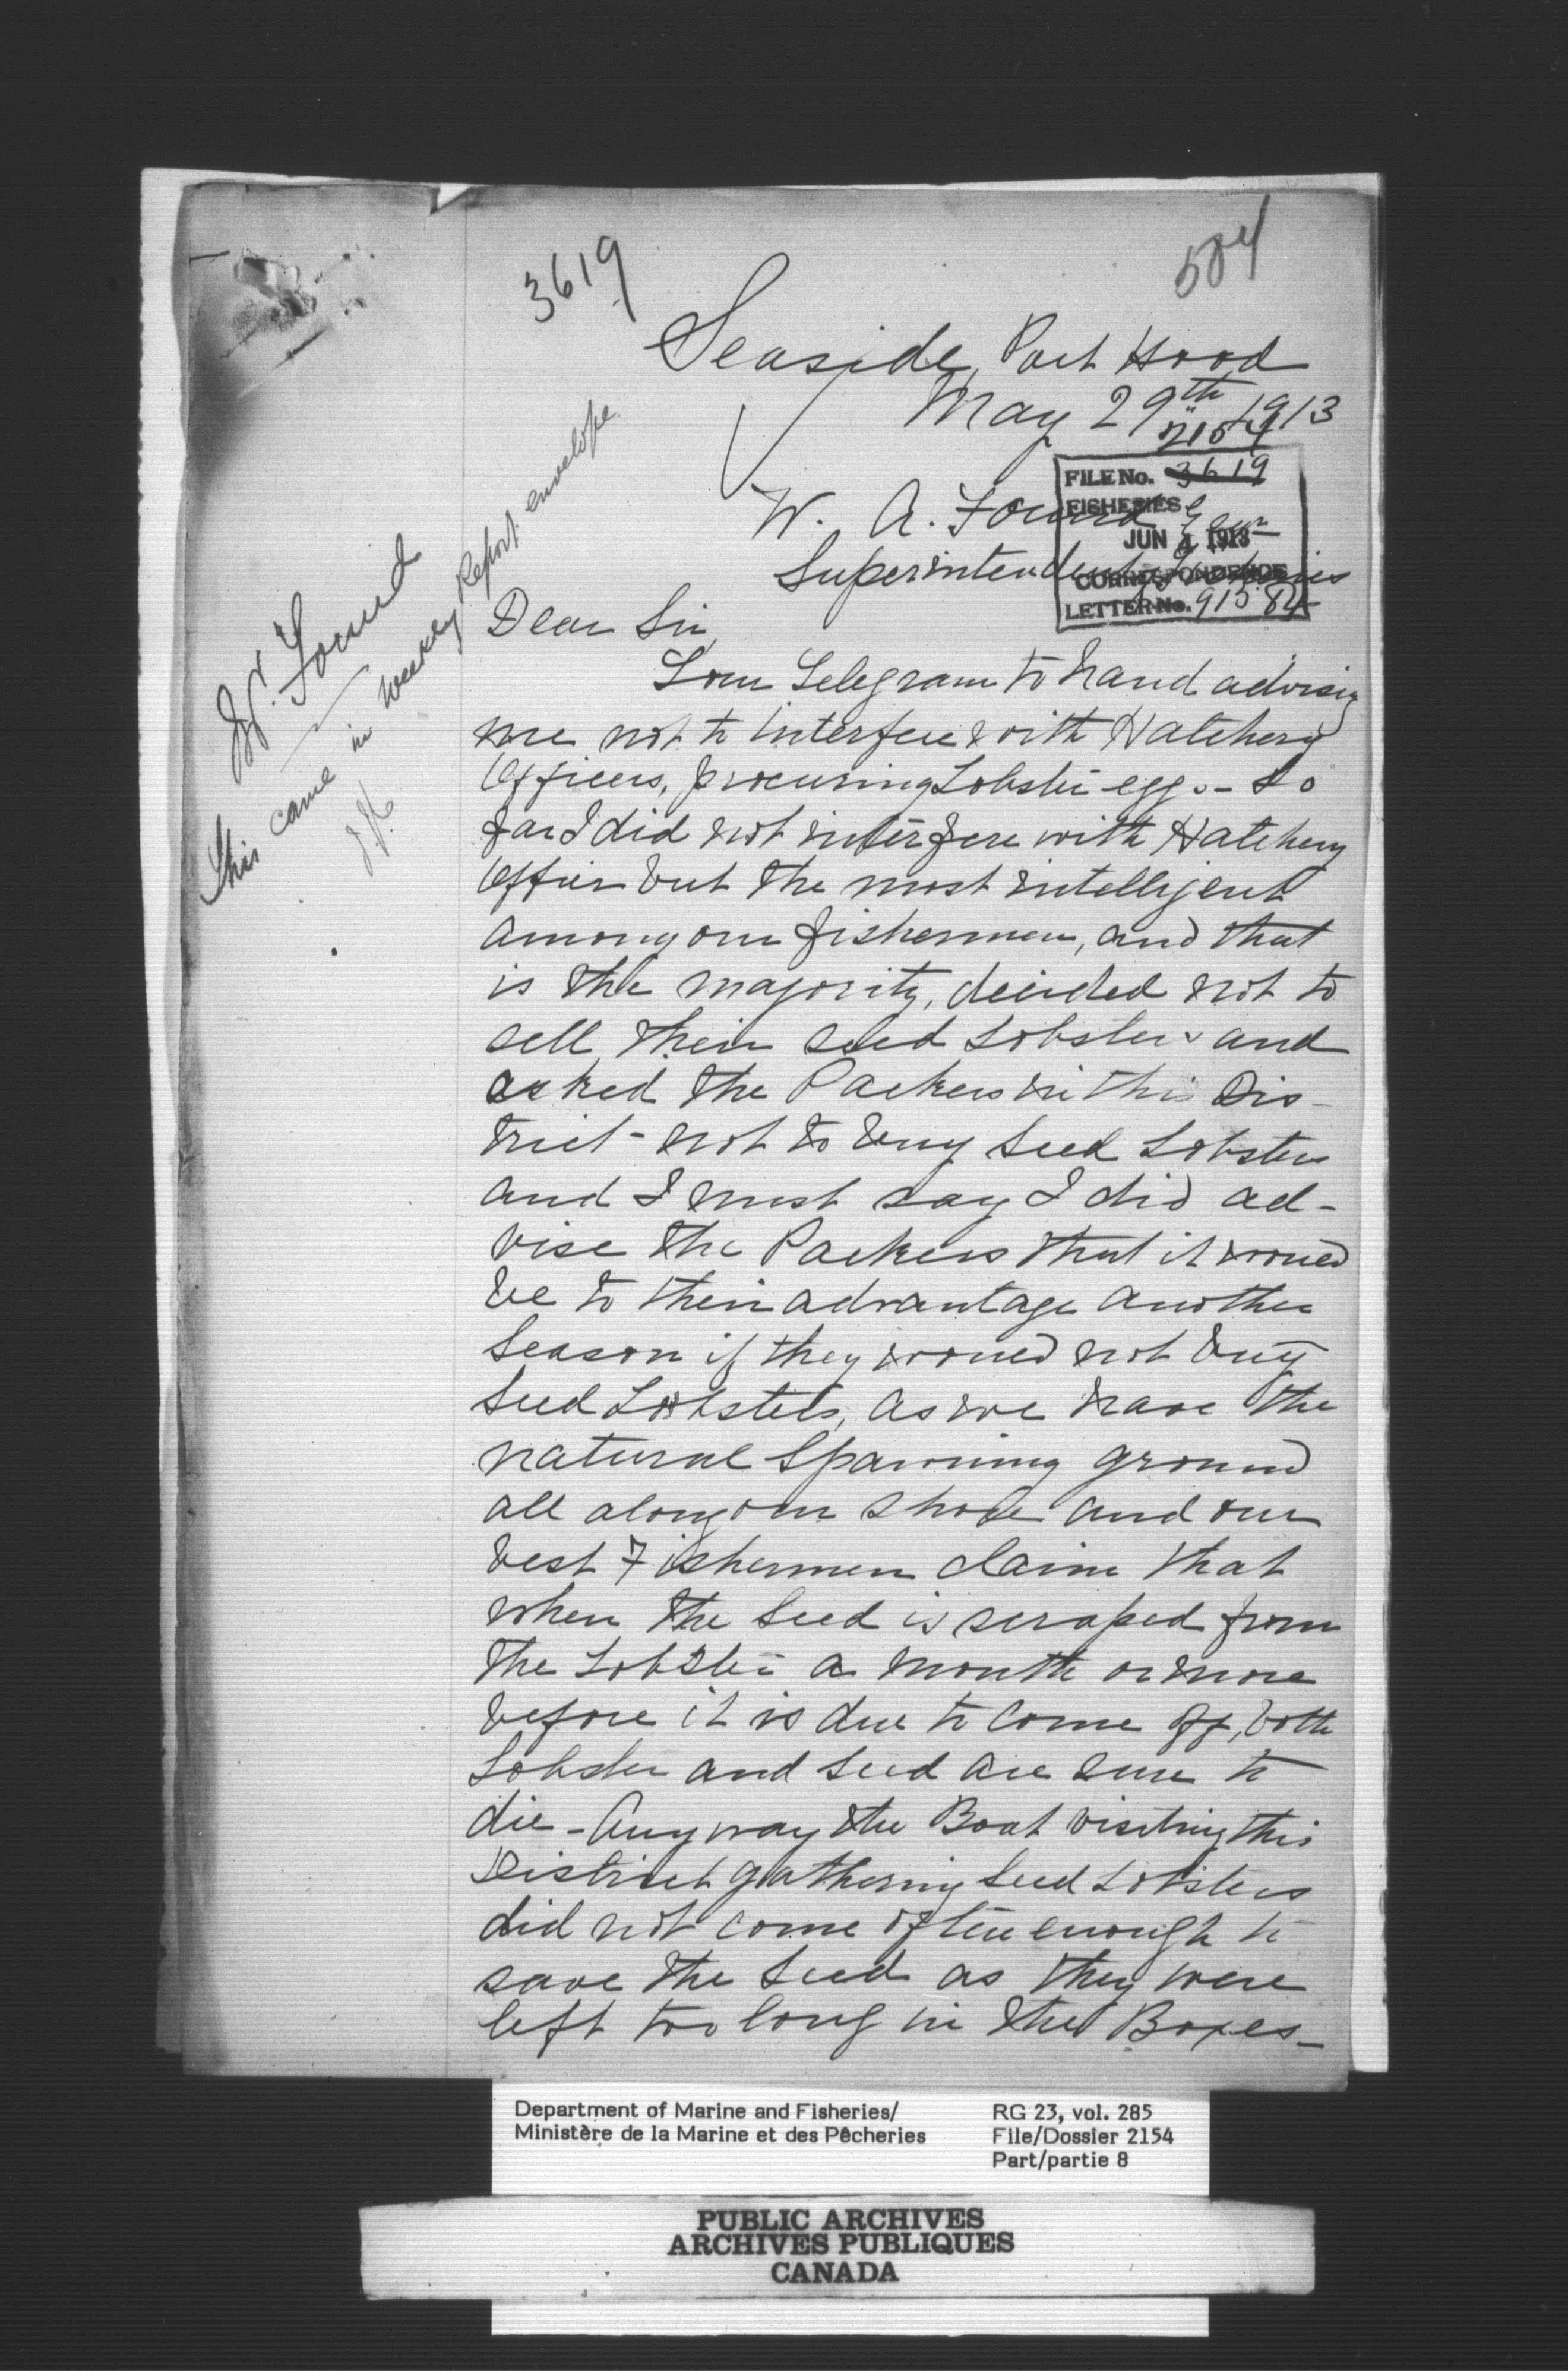 3619
504
Seaside, Port Hood
May 29th 1913
2154
FILE No. 3619
FISHERIES
JUN 4 1913
CORRESPONDENCE
LETTER No. 91584
W. A. Found Esqr
Superintendent of Fisheries
Mr. Found
This came in weekly Report envelope.
Dear Sir,
Your Telegram to hand advising
me not to interfere with Hatchery
Officers, procuring Lobster eggs - So
far I did not interfere with Hatchery
Officer but the most intelligent
among our fishermen, and that
is the majority, decided not to
sell their seed Lobsters and
asked the Packers in this Dis-
trict - not to buy seed Lobsters
and I must say I did ad-
vise the Packers that it would
be to their advantage another
Season if they would not buy
Seed Lobsters, as we have the
natural Spawning ground
all along our shore and our
best Fishermen claim that
when the Seed is scraped from
the Lobster a month or more
before it is due to come off, both
Lobster and Seed are sure to
die - Anyway the Boat visiting this
District gathering Seed Lobsters
did not come often enough to
save the Seed as they were
left too long in the Boxes -
Department of Marine and Fisheries/
Ministère de la Marine et des Pêcheries
RG 23, vol. 285
File/Dossier 2154
Part/partie 8
PUBLIC ARCHIVES
ARCHIVES PUBLIQUES
CANADA